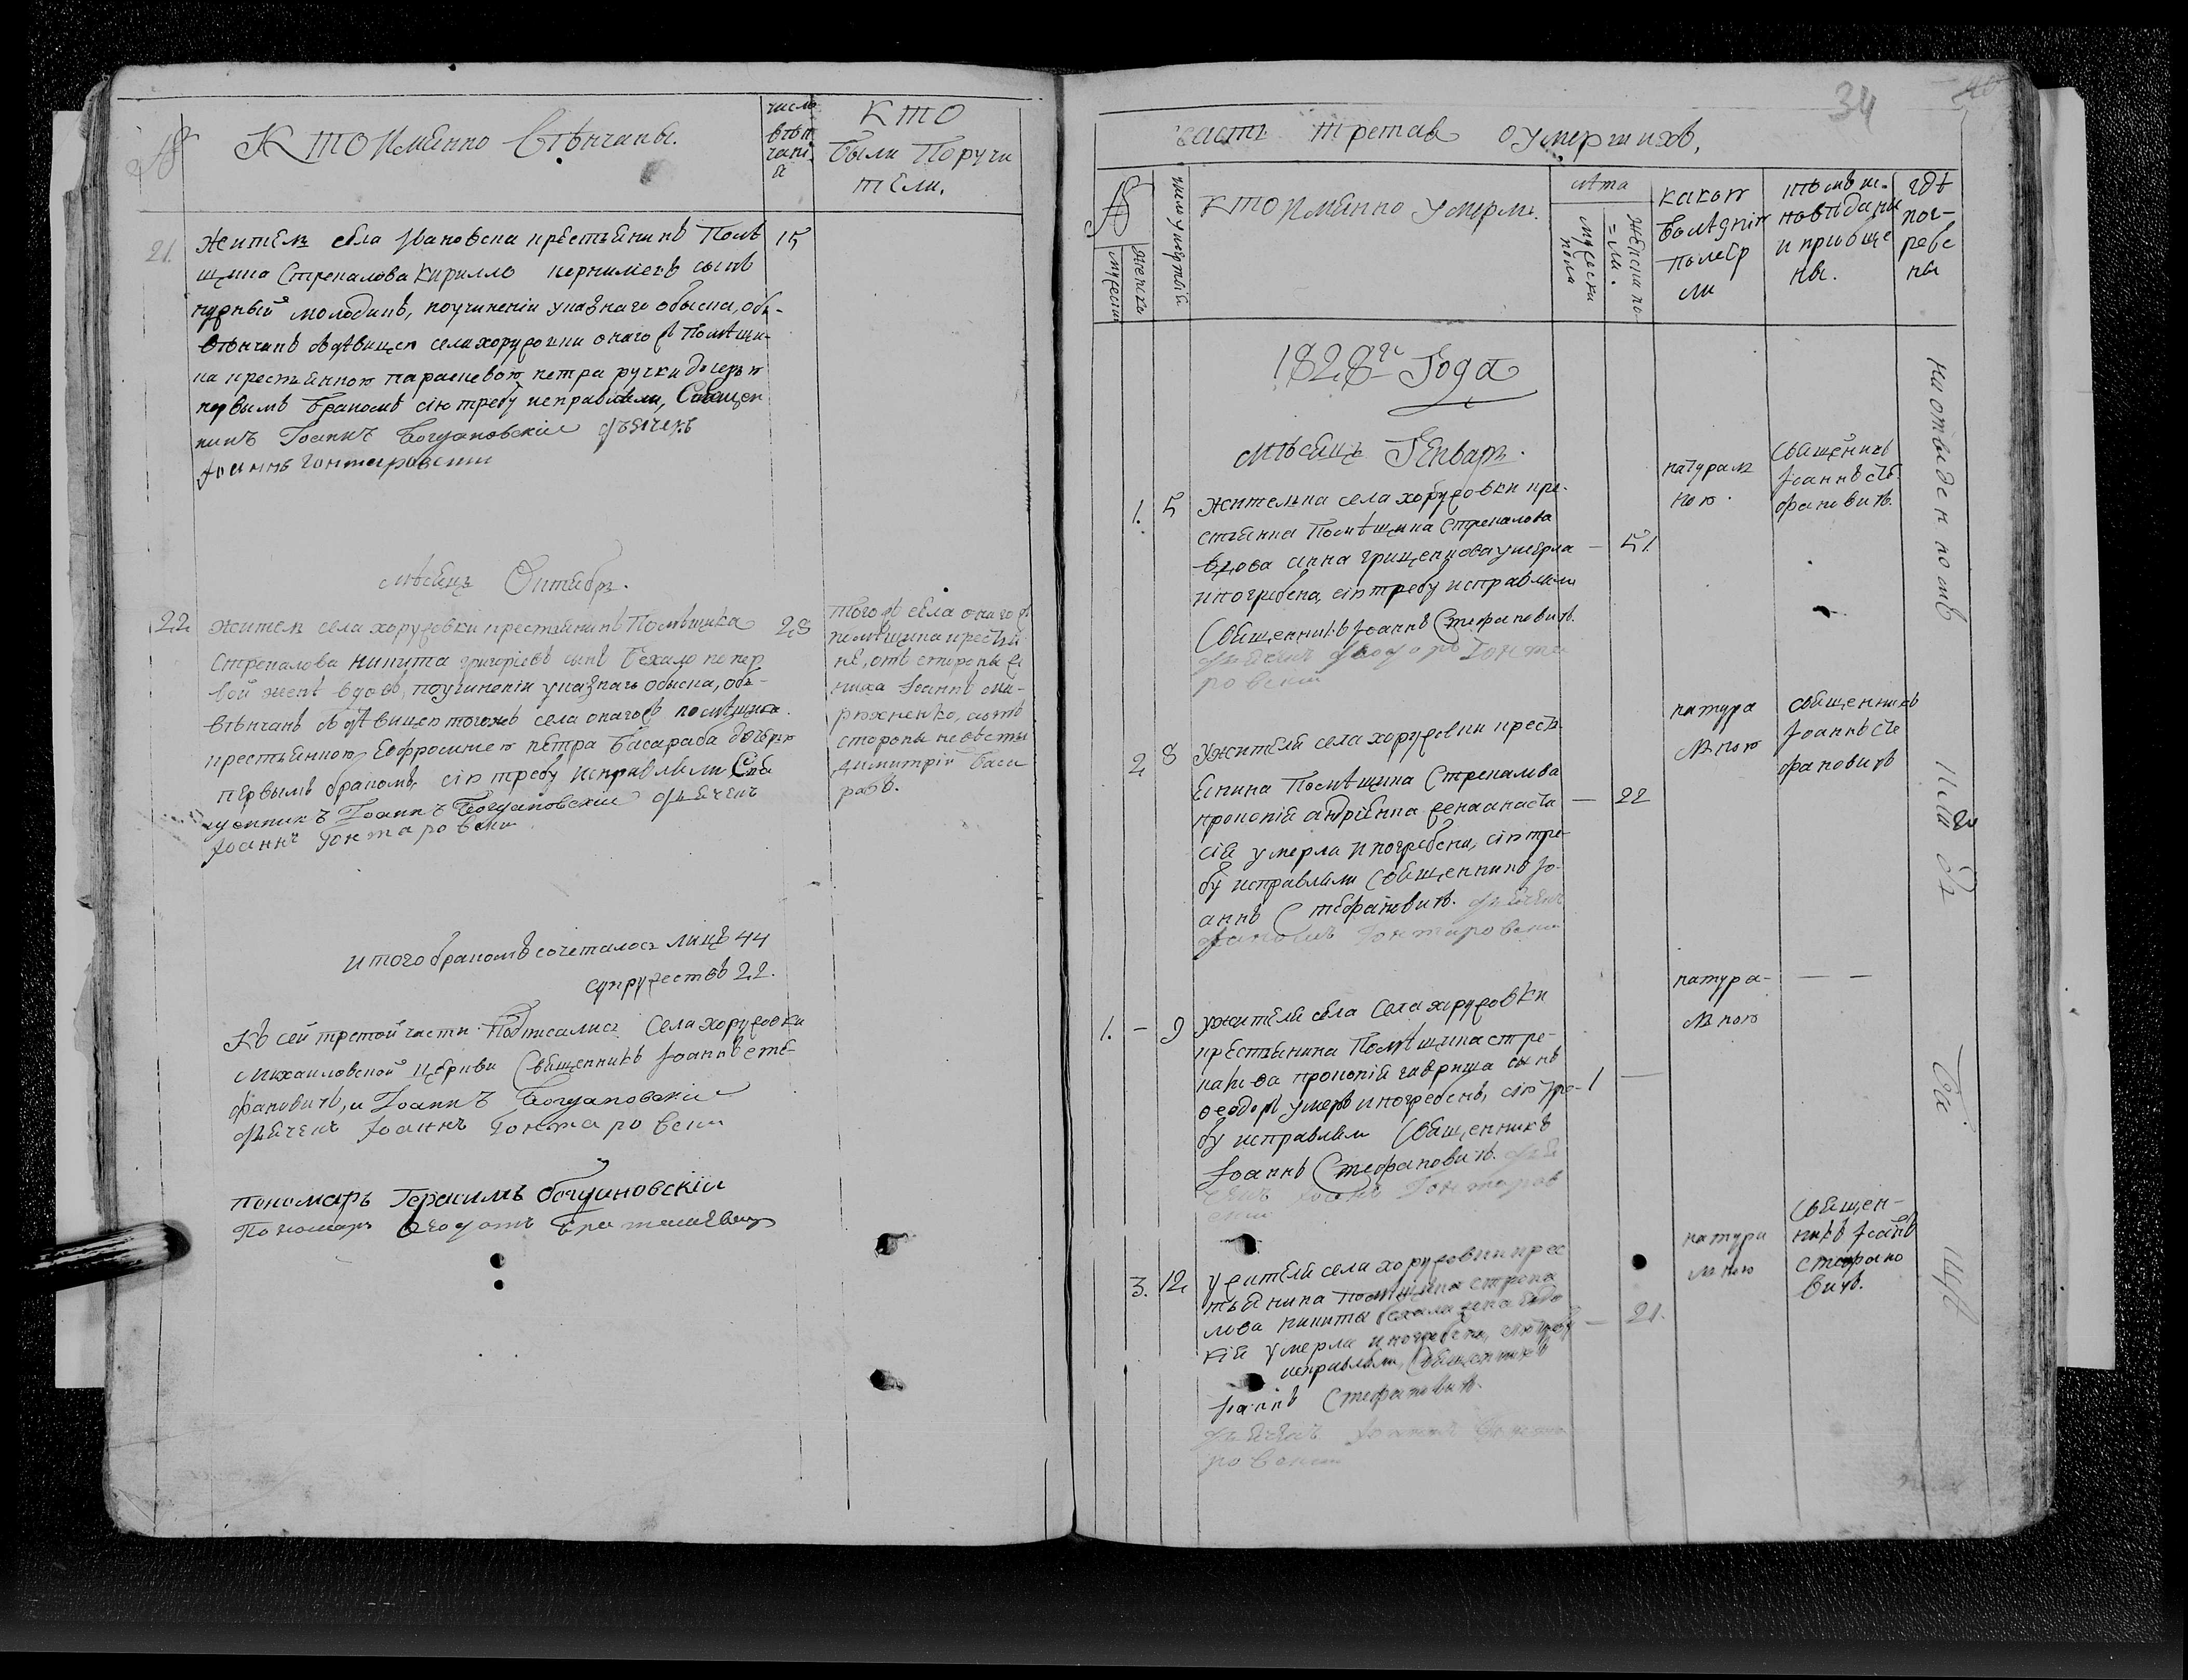 №
Кто Именно Вѣнчаны.
число
вѣн
чані
я
Кто
были Поручи
тели.
21.
Житель села Ивановска крестьянинъ Помѣ
15
щика Стрекалова Кирилло сынъ
молодикъ, поучиненіи указнаго обыска, об-
вѣнчанъ здѣвицею села хоружовки онагожъ Помѣщи-
ка крестьянкою параскевою петра ручки дочерью
первымъ бракомъ сію требу исправляли, Священ
никъ Іоаннъ Богдановскій дьячекъ
Іоаннъ Гонтаровскій
Мѣсяцъ Октябрь.
22
житель села хоружовки крестьянинъ Помѣщика
28
Стрекалова Никита григоріевъ сынъ Бехало попер
вой женѣ вдовъ, поучиненіи указнаго обыска, об-
вѣнчанъ здѣвицею тогожъ села онагожъ помѣщика
крестьянкою Евфросиніею петра Басараба дочерью
первымъ бракомъ, сію требу исправляли Свя
щенникъ Іоаннъ Богдановскій дьячекъ
Іоаннъ Гонтаровскій
тогожъ села онагожъ
помѣщика крестья
не, отъ стороны же
ниха Іоаннъ Ми-
рюхненко, аотъ
стороны невесты
Димитрій Баса
рабъ.
Итого бракомъ сочеталось лицъ 44
супружествъ 22.
Къ сей третой части Подписались Села хоружовки
Михаиловской церкви Священникъ Іоаннъ Сте-
фановичъ, и Іоаннъ Богдановскій
дьячекъ Іоаннъ Гонтаровскій
пономарь Герасимъ богдановскій
Пономарь Ѳеодотъ
34
часть третая оумершихъ,
№
мужеска
женска
число умертвій
кто Именно умерли.
лѣта
мужеска
пола
женска по-
=ла.
какою
болѣзнію
померли
кѣмъ ис-
повѣданы
и приобще
ны.
гдѣ
пог-
ребе
ны
1828го Года
Мѣсяцъ Генварь.
1.
5
жителька села хоружовки кре-
стьянка Помѣщика Стрекалова
вдова анна грищенкова умерла
— 51
ипогребена, сію требу исправляли
Священникъ Іоаннъ Стефановичъ.
дьячекъ Гонта
ровскій
натураль
ною.
Священикъ
Іоаннъ Сте
фановичъ.
2
8
Ужителя села хоружовки кресть
янина Помѣщика Стрекалова
прокопія андріенка жена анаста
— 22
сія умерла ипогребена, сію тре-
бу исправляли Священникъ Іо-
аннъ Стефановичъ. дьячекъ
Гонтаровскій
натура
льною
священникъ
Іоаннъ Сте
фановичъ
1. — 9
ужителя села Села хоружовки
крестьянина Помѣщика стре-
калова прокопія гавриша сынъ
Ѳеодоръ умеръ ипогребенъ, сію тре-
1 —
бу исправляли Священникъ
Іоаннъ Стефановичъ. дья
чекъ Іоаннъ Гонтаров
скій
натура-
льною
— —
3. 12
ужителя села хоружовки крес
тьянина помѣщика стрека
лова никиты бехала жена
кія умерла ипогребена, сію требу
— 21.
исправляли, Священникъ
Іоаннъ Стефановичъ.
дьячекъ Іоаннъ Гонта
ровскій
натура
льною
Священ-
никъ Іоаннъ
Стефано
вичъ.